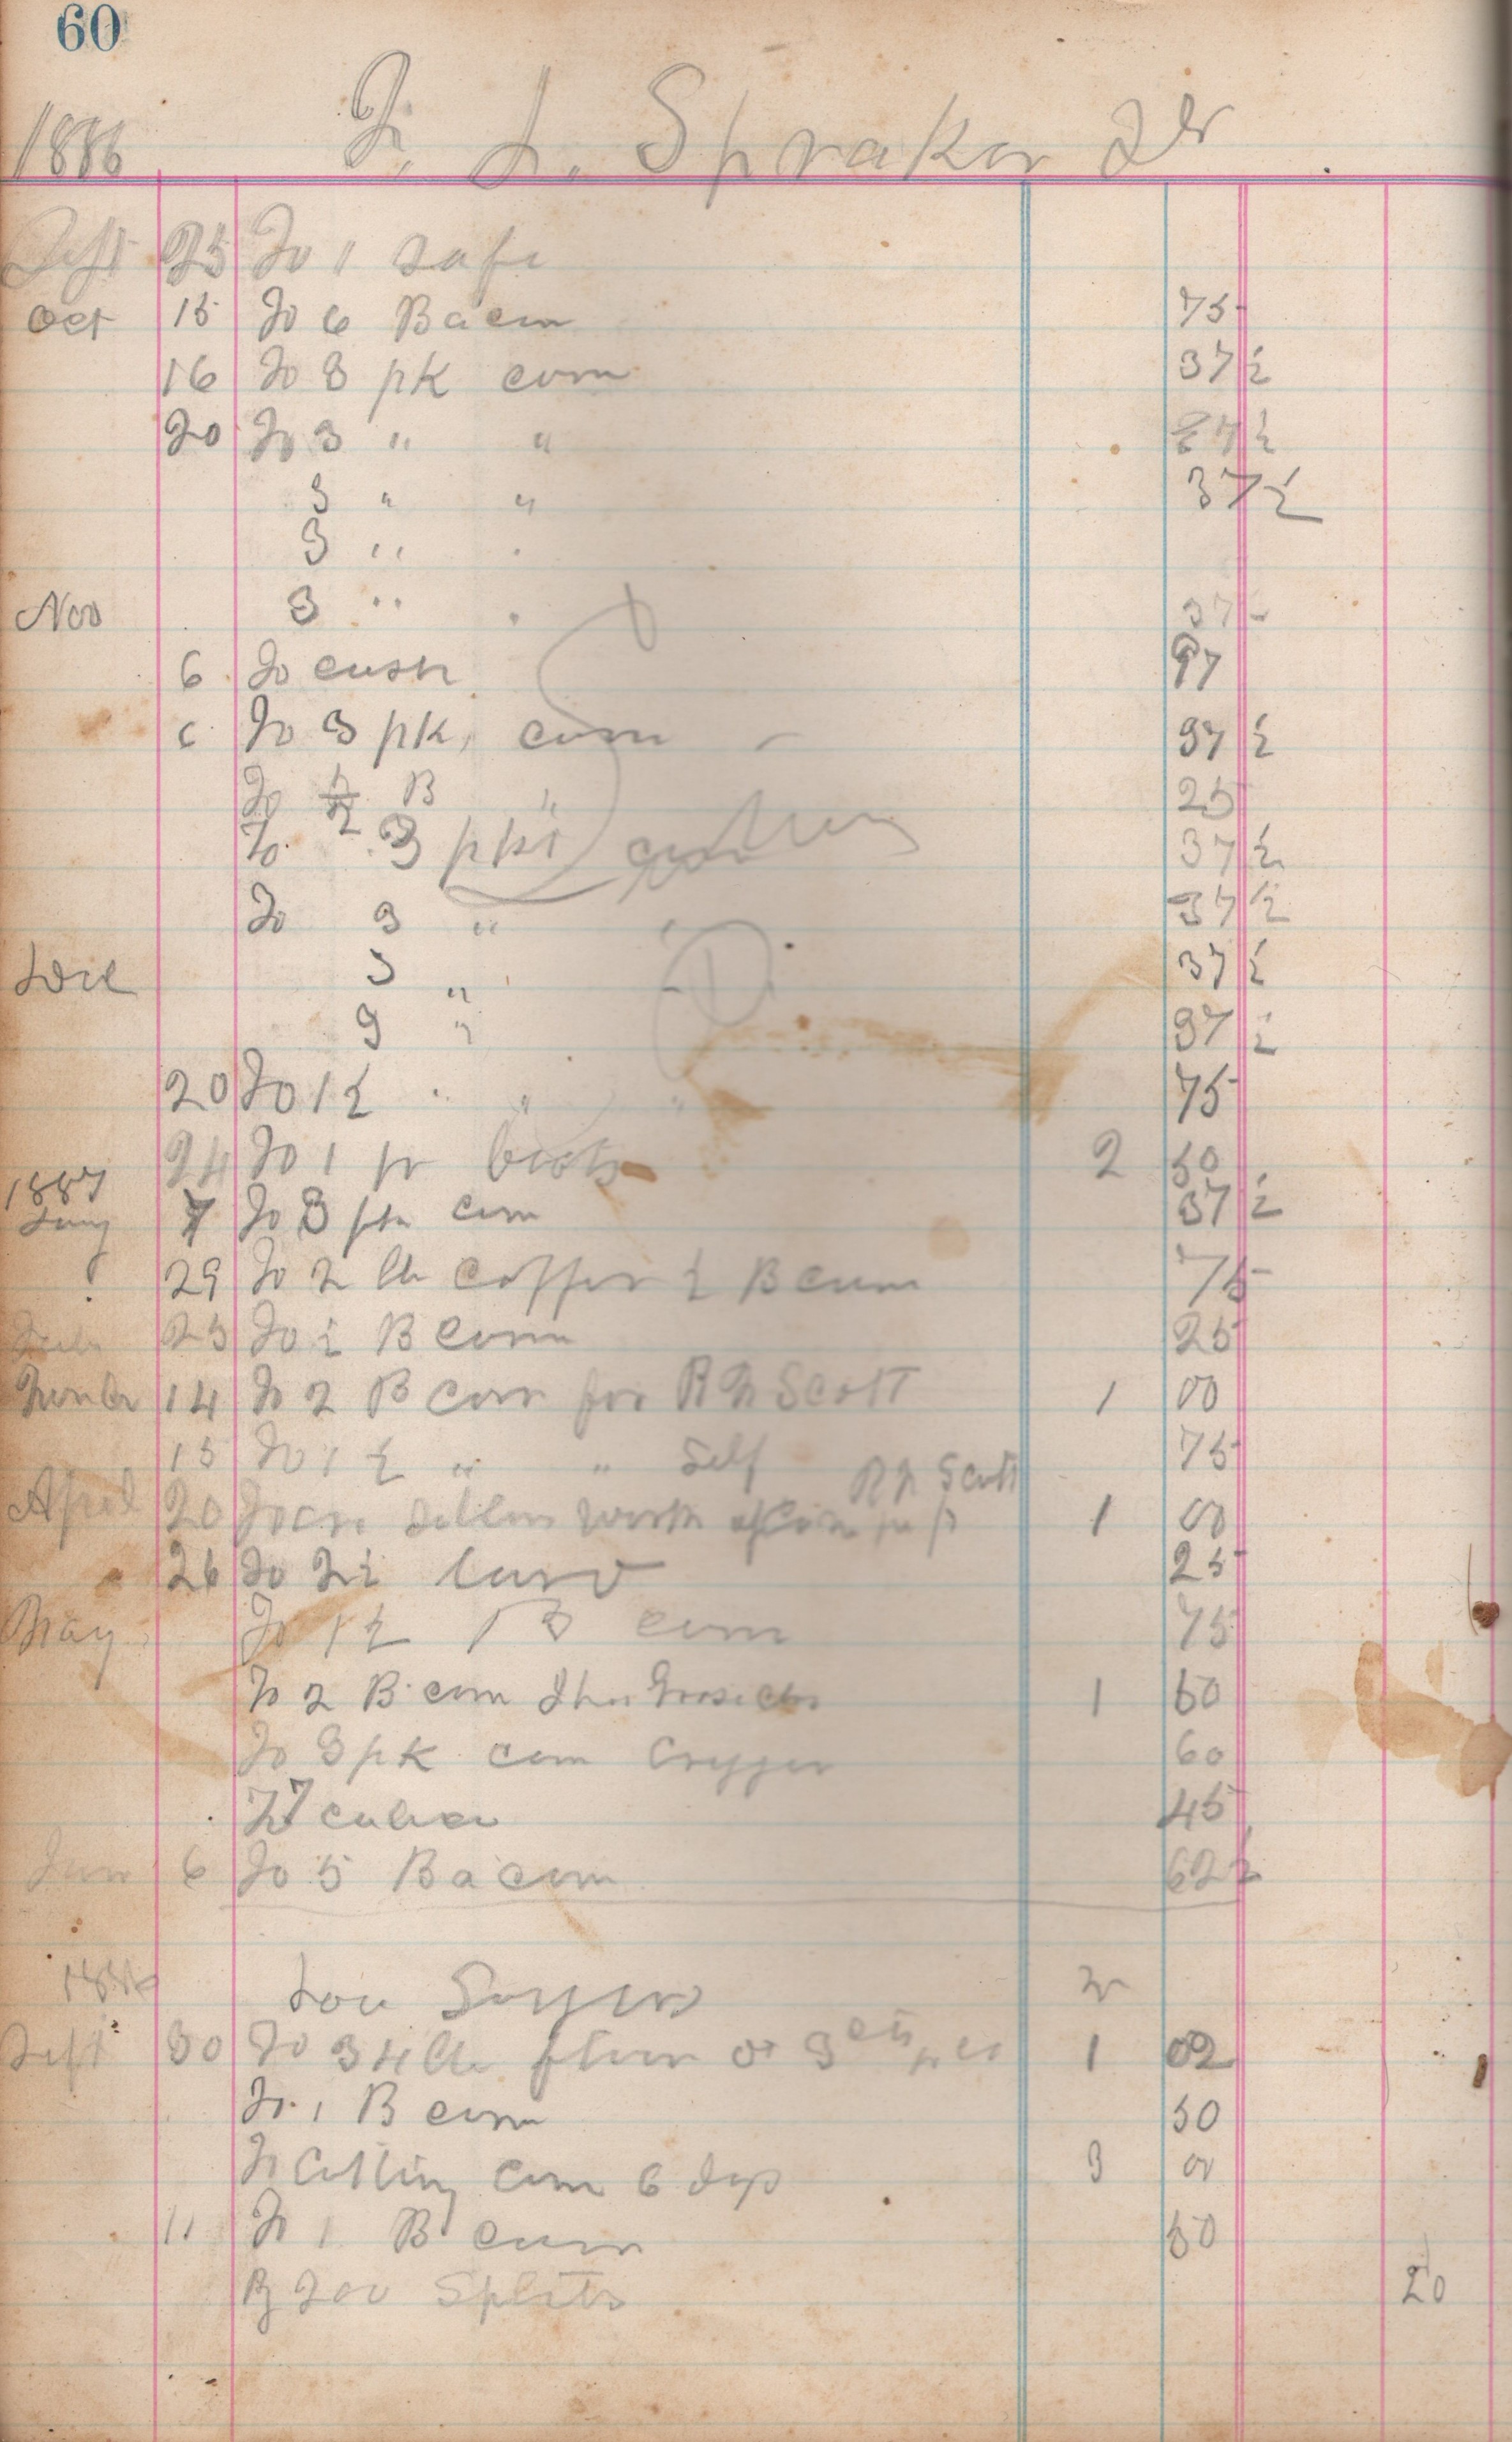 60
1886
F. L. Spraker Dr
Sept 25 To 1 safe
Oct 15 To 6 Bacon 75
16 To 3 pk corn 37 ½
20 To 3 " " 37 ½
3 " " 37 ½
3 "
Nov 3 " 37 ½
6 To cash 97
6 To 3 pk corn 37 ½
To ½ B " 25
To 3 pks 37 ½
To 3 " 37 ½
Dec 3 " 37 ½
3 " 37 ½
20 To 1 ½ " " 75
24 To 1 pr boots 2 50
1887
Jany 7 To 3 pk corn 37 ½
29 To 2 lb Coffee ½ B corn 75
Feb 25 To ½ B Corn 25
14 To 2 B Corn for R N Scott 1 00
15 To 1 ½ " " Self 75
R N Scott
April 20 To one dollars worth of Corn 1 00
26 To 2 ½ lard 25
May To 1 ½ B corn 75
To 2 B corn 1 50
To 3 pk corn 60
45
June 6 To 5 Bacon 62 ½
1886
Lou Sayers Dr
Sept 30 To 34 lb flour 3 cts 1 02
To 1 B corn 50
To Cutting corn 6 days 3 00
11 To 1 B corn 50
By 200 Splits 20